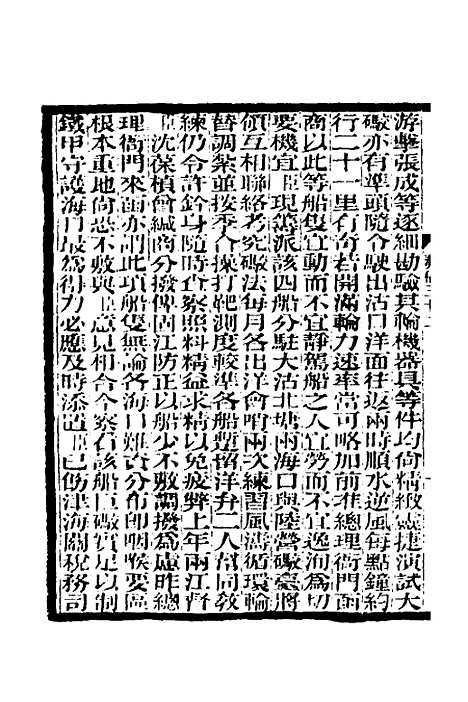 游擊張成等逐細勘驗其輪機器具等件均尚精緻靈捷演試大
礮亦有準頭隨令駛出沽口洋面往返兩時順水逆風每點鐘約
行二十一里有奇若開滿輪力速率當可略加前准總理衙門函
商以此等船隻宜動而不宜靜駕船之人宜勞而不宜逸洵為切
要機宜臣現籌派該四船分駐大沽北塘兩海口與陸營礮臺將
領互相聯絡考究礮法每月各出洋會哨兩次練習風濤循環輪
替調紮並按季合操打靶測度較準各船暫留洋弁二人幫同教
練仍令許鈐身隨時查察照料精益求精以免疲弊上年兩江督
臣沈葆楨曾緘商分撥俾固江防正以船少不敷調撥為慮昨總
理衙門來函亦謂此項船隻無論各海口難資分布即咽喉要區
根本重地尚恐不敷與臣意見相合今察看該船巨礮實足以制
鐵甲守護海口最為得力必應及時添置臣已飭津海關稅務司